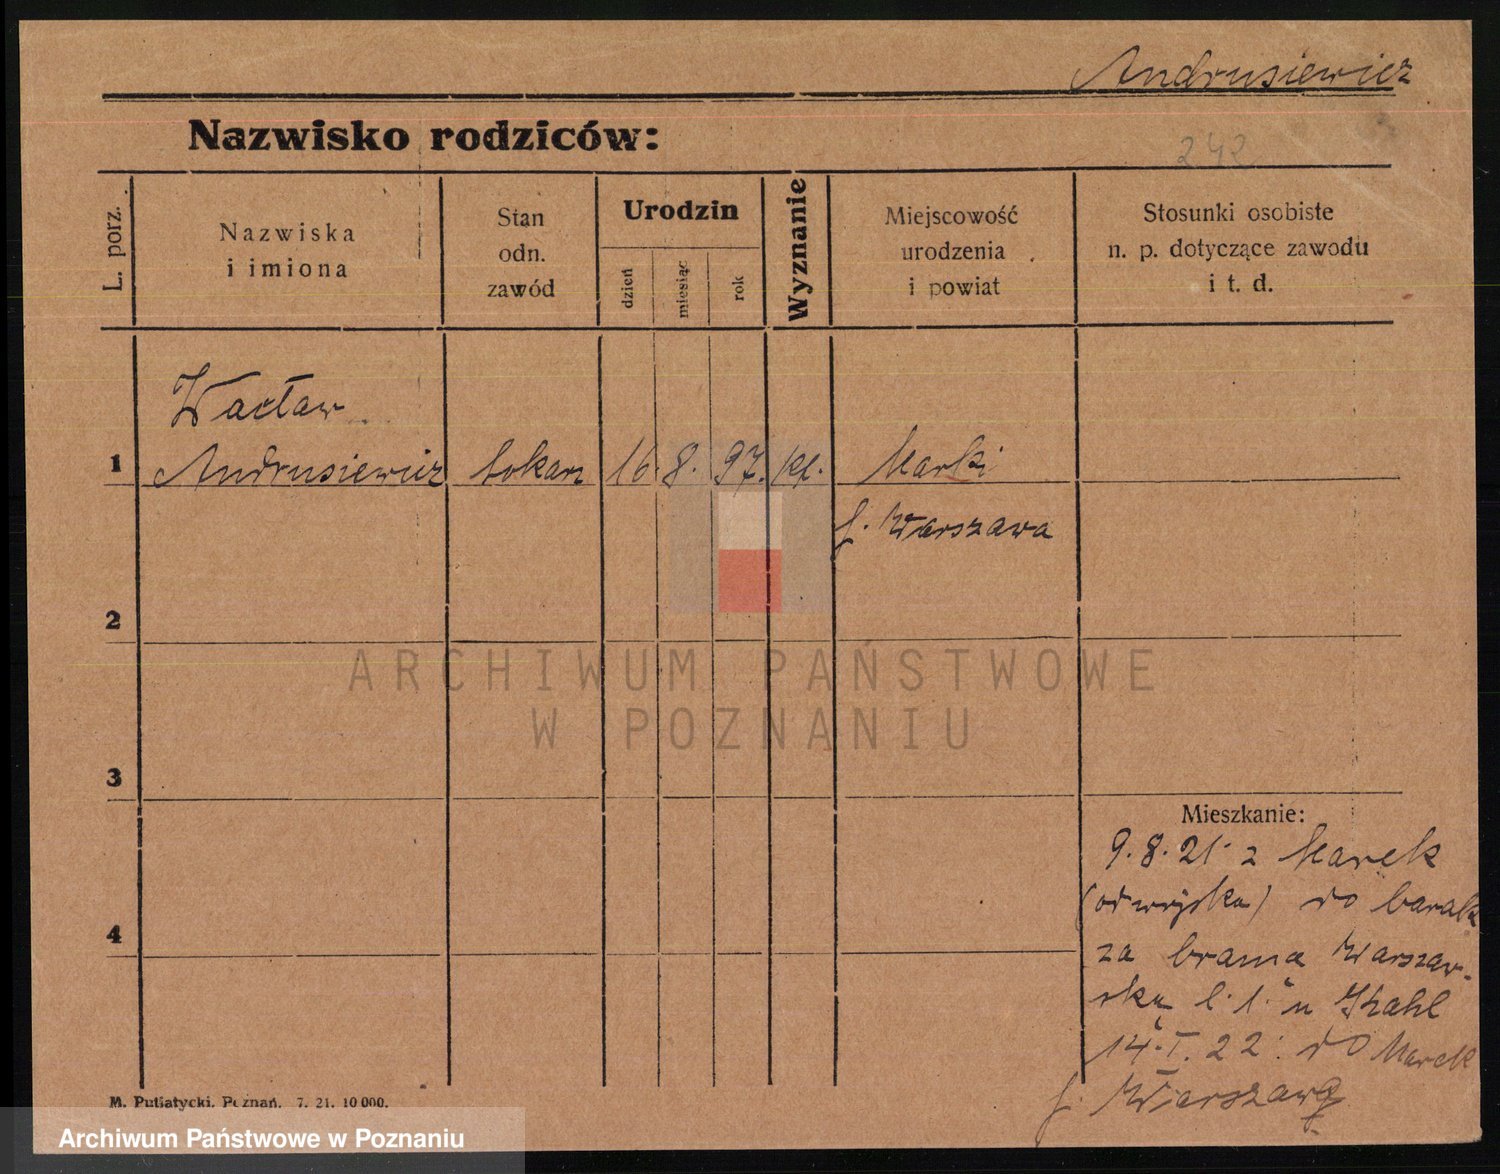 Andrusiewicz
Nazwisko rodziców:
242
L. porz.
Nazwiska
i imiona
Stan
odn.
zawód
Urodzin
dzień
miesiąc
rok
Wyznanie
Miejscowość
urodzenia
i powiat
Stosunki osobiste
n. p. dotyczące zawodu
i t. d.
Wacław
1 Andrusiewicz tokarz 16. 8. 97. kt. Marki
p. Warszawa
2
ARCHIWUM PAŃSTWOWE
W POZNANIU
3
Mieszkanie:
9. 8. 21. z Marek
(od wojska) do barak
4
za bramą Warszaw-
ską l. 1. u Stahl
14. I. 22. do Marek
p. Warszawą
M. Putiatycki. Poznań. 7. 21. 10 000.
Archiwum Państwowe w Poznaniu